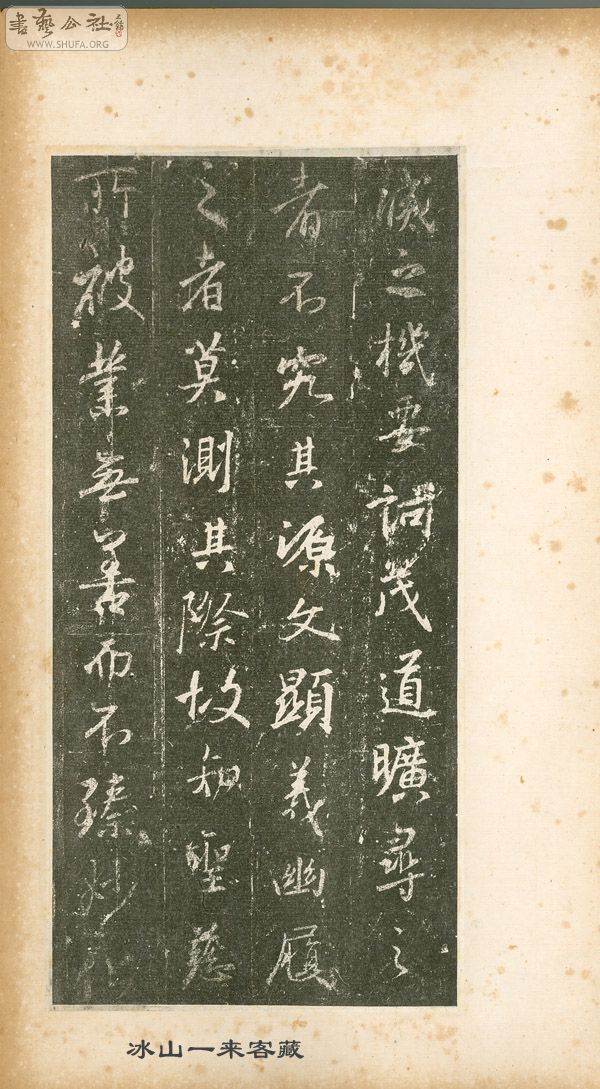 書藝公社
WWW.SHUFA.ORG
滅之機要詞茂道曠尋之
者不究其源文顯義幽履
之者莫測其際故知聖慈
所被業無善而不臻妙化
冰山一来客藏